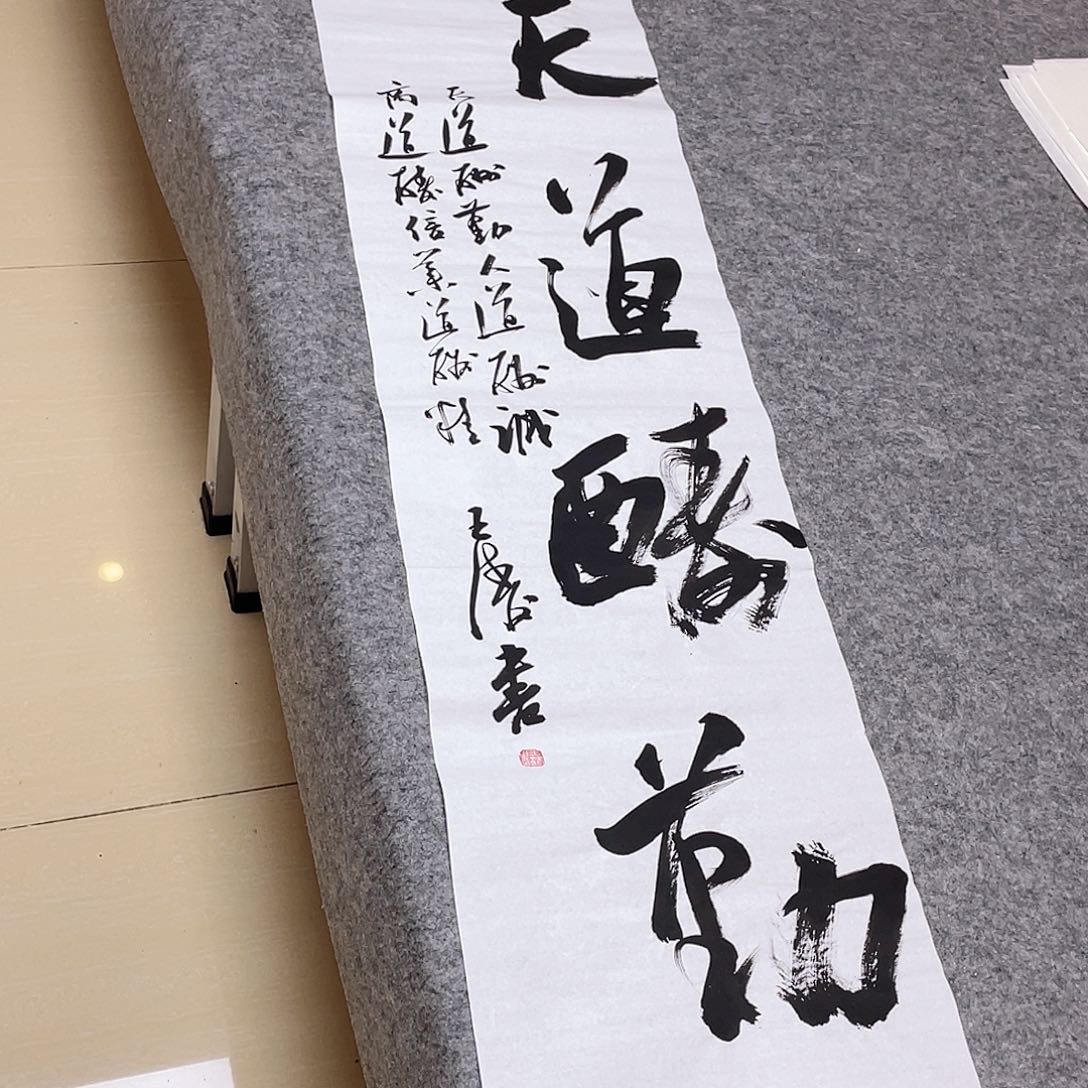 天道酬勤
天道酬勤人道酬诚
商道酬信业道酬精
书